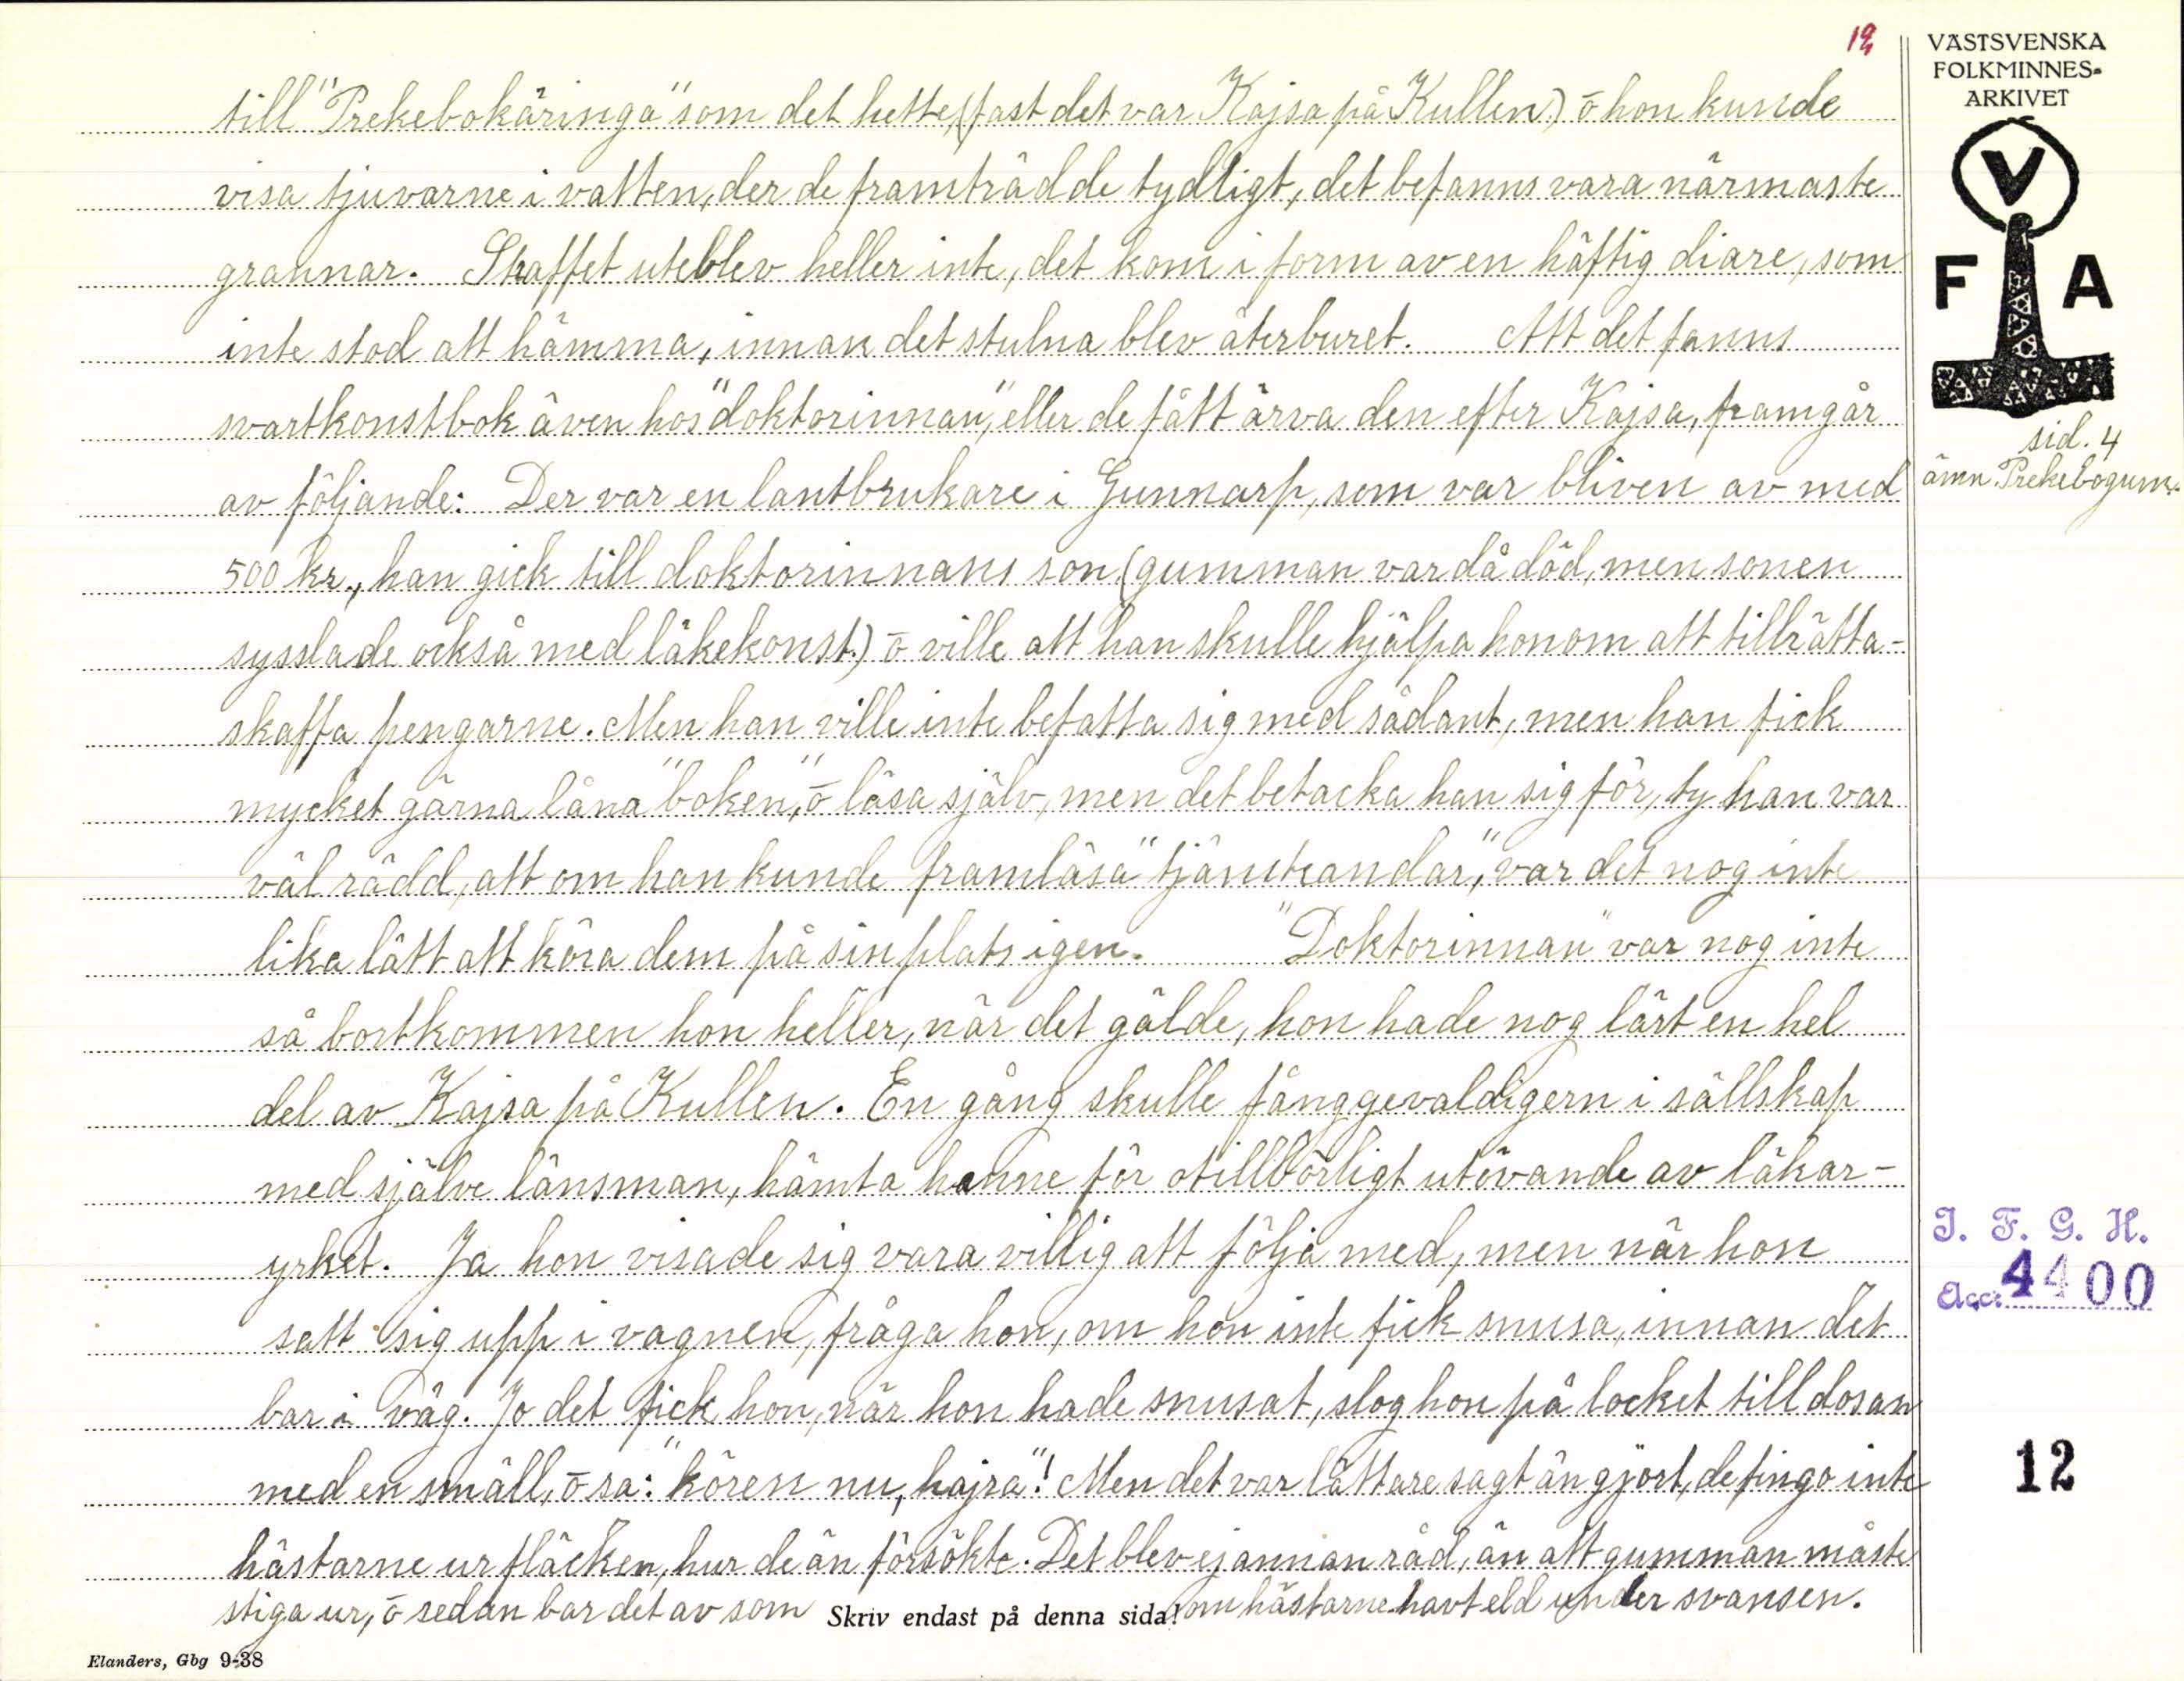 12
VÄSTSVENSKA
FOLKMINNES-
ARKIVET
V
F A
sid. 4
ämn. Prekebogum.
till "Prekebokäringa" som det hette, (fast det var Kajsa på Kullen) ō hon kunde
visa tjuvarne i vatten, der de framträdde tydligt, det befanns vara närmaste
grannar. Straffet uteblev heller inte, det kom i form av en häftig diare, som
inte stod att hämma, innan det stulna blev återburet. Att det fanns
svartkonstbok även hos "doktorinnan", eller de fått ärva den efter Kajsa, framgår
av följande: Der var en lantbrukare i Gunnarp, som var bliven av med
500 kr., han gick till doktorinnans son (gumman var då död, men sonen
sysslade också med läkekonst.) ō ville att han skulle hjälpa honom att tillrätta-
skaffa pengarne. Men han ville inte befatta sig med sådant, men han fick
mycket gärna låna "boken", ō läsa själv, men det betacka han sig för, ty han var
väl rädd, att om han kunde framläsa "tjänsteandar", var det nog inte
lika lätt att köra dem på sin plats igen. "Doktorinnan" var nog inte
så bortkommen hon heller, när det gälde, hon hade nog lärt en hel
del av Kajsa på Kullen. En gång skulle fånggevaldigern i sällskap
med själve länsman, hämta henne för otillbörligt utövande av läkar-
yrket. Ja hon visade sig vara villig att följa med, men när hon
satt sig upp i vagnen, fråga hon, om hon inte fick snusa, innan det
bar i väg. Jo det fick hon, när hon hade snusat, slog hon på locket till dosan
med en smäll, ō sa: "kören nu, hajra"! Men det var lättare sagt än gjort, de fingo inte
hästarne ur fläcken, hur de än försökte. Det blev ej annan råd, än att gumman måste
stiga ur, ō sedan bar det av som om hästarne havt eld under svansen.
Skriv endast på denna sida!
I. F. G. H.
Acc. 4400
12
Elanders, Gbg 9-38